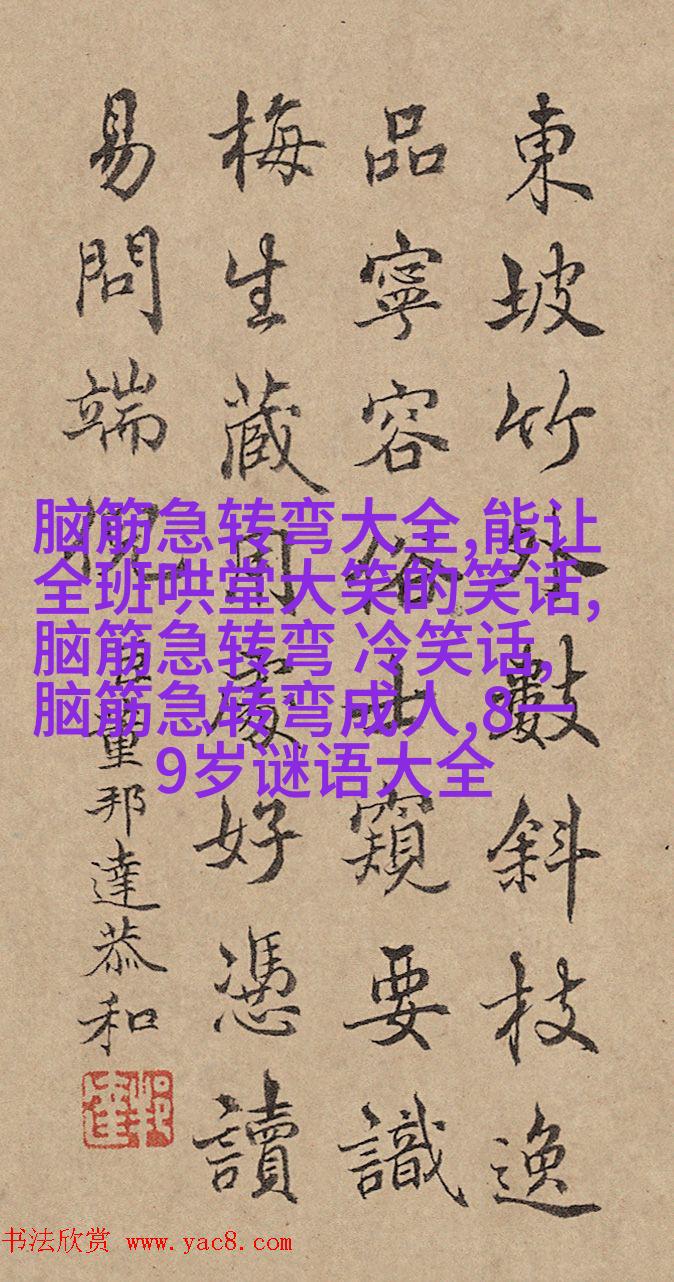 東坡竹外數斜枝逸
品寧容俗士窺要識
梅生藏用處好憑讀
易問端倪
臣董邦達恭和
脑筋急转弯大全,能让
全班哄堂大笑的笑话,
脑筋急转弯 冷笑话,
脑筋急转弯成人,8一
9岁谜语大全
书法欣赏 www.yac8.com